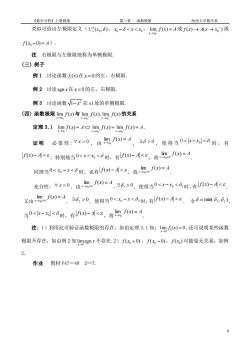 《数学分析》上册教案 第三章 函数极限 海南大学数学系
类似可给出左极限定义（U⁰₋(x₀;δ)，x₀−δ<x<x₀，lim_{x→x₀⁻} f(x)=A 或 f(x)→A(x→x₀⁻) 或
f(x₀−0)=A）.
注 右极限与左极限统称为单侧极限.
（三）例子
例1 讨论函数 f₁(x) 在 x=0 的左、右极限.
例2 讨论 sgn x 在 x=0 的左、右极限.
例3 讨论函数 √(1−x²) 在 ±1 处的单侧极限.
（四）函数极限 lim_{x→x₀} f(x) 与 lim_{x→x₀⁺} f(x), lim_{x→x₀⁻} f(x) 的关系
定理 3.1 lim_{x→x₀} f(x)=A ⇔ lim_{x→x₀⁺} f(x)=lim_{x→x₀⁻} f(x)=A.
证明 必要性：∀ε>0，由 lim_{x→x₀} f(x)=A，∃δ>0，使得当 0<|x−x₀|<δ 时，有
|f(x)−A|<ε，特别地当 0<x−x₀<δ 时，有 |f(x)−A|<ε，故 lim_{x→x₀+} f(x)=A.
同理当 0<x₀−x<δ 时，也有 |f(x)−A|<ε，故 lim_{x→x₀−} f(x)=A.
充分性：∀ε>0，由 lim_{x→x₀+} f(x)=A，∃δ₁>0，使得当 0<x−x₀<δ₁ 时，有 |f(x)−A|<ε，
又由 lim_{x→x₀−} f(x)=A，∃δ₂>0，使得当 0<x₀−x<δ₂ 时，有 |f(x)−A|<ε. 令 δ=min{δ₁,δ₂}，
当 0<|x−x₀|<δ 时，有 |f(x)−A|<ε，故 lim_{x→x₀} f(x)=A.
注：1）利用此可验证函数极限的存在，如由定理 3.1 知：lim_{x→0} f₁(x)=0. 还可说明某些函数
极限不存在，如由例 2 知 lim_{x→0} sgn x 不存在. 2）f(x₀+0)，f(x₀−0)，f(x₀) 可能毫无关系，如例
2.
作业 教材 P47—48 2—7.